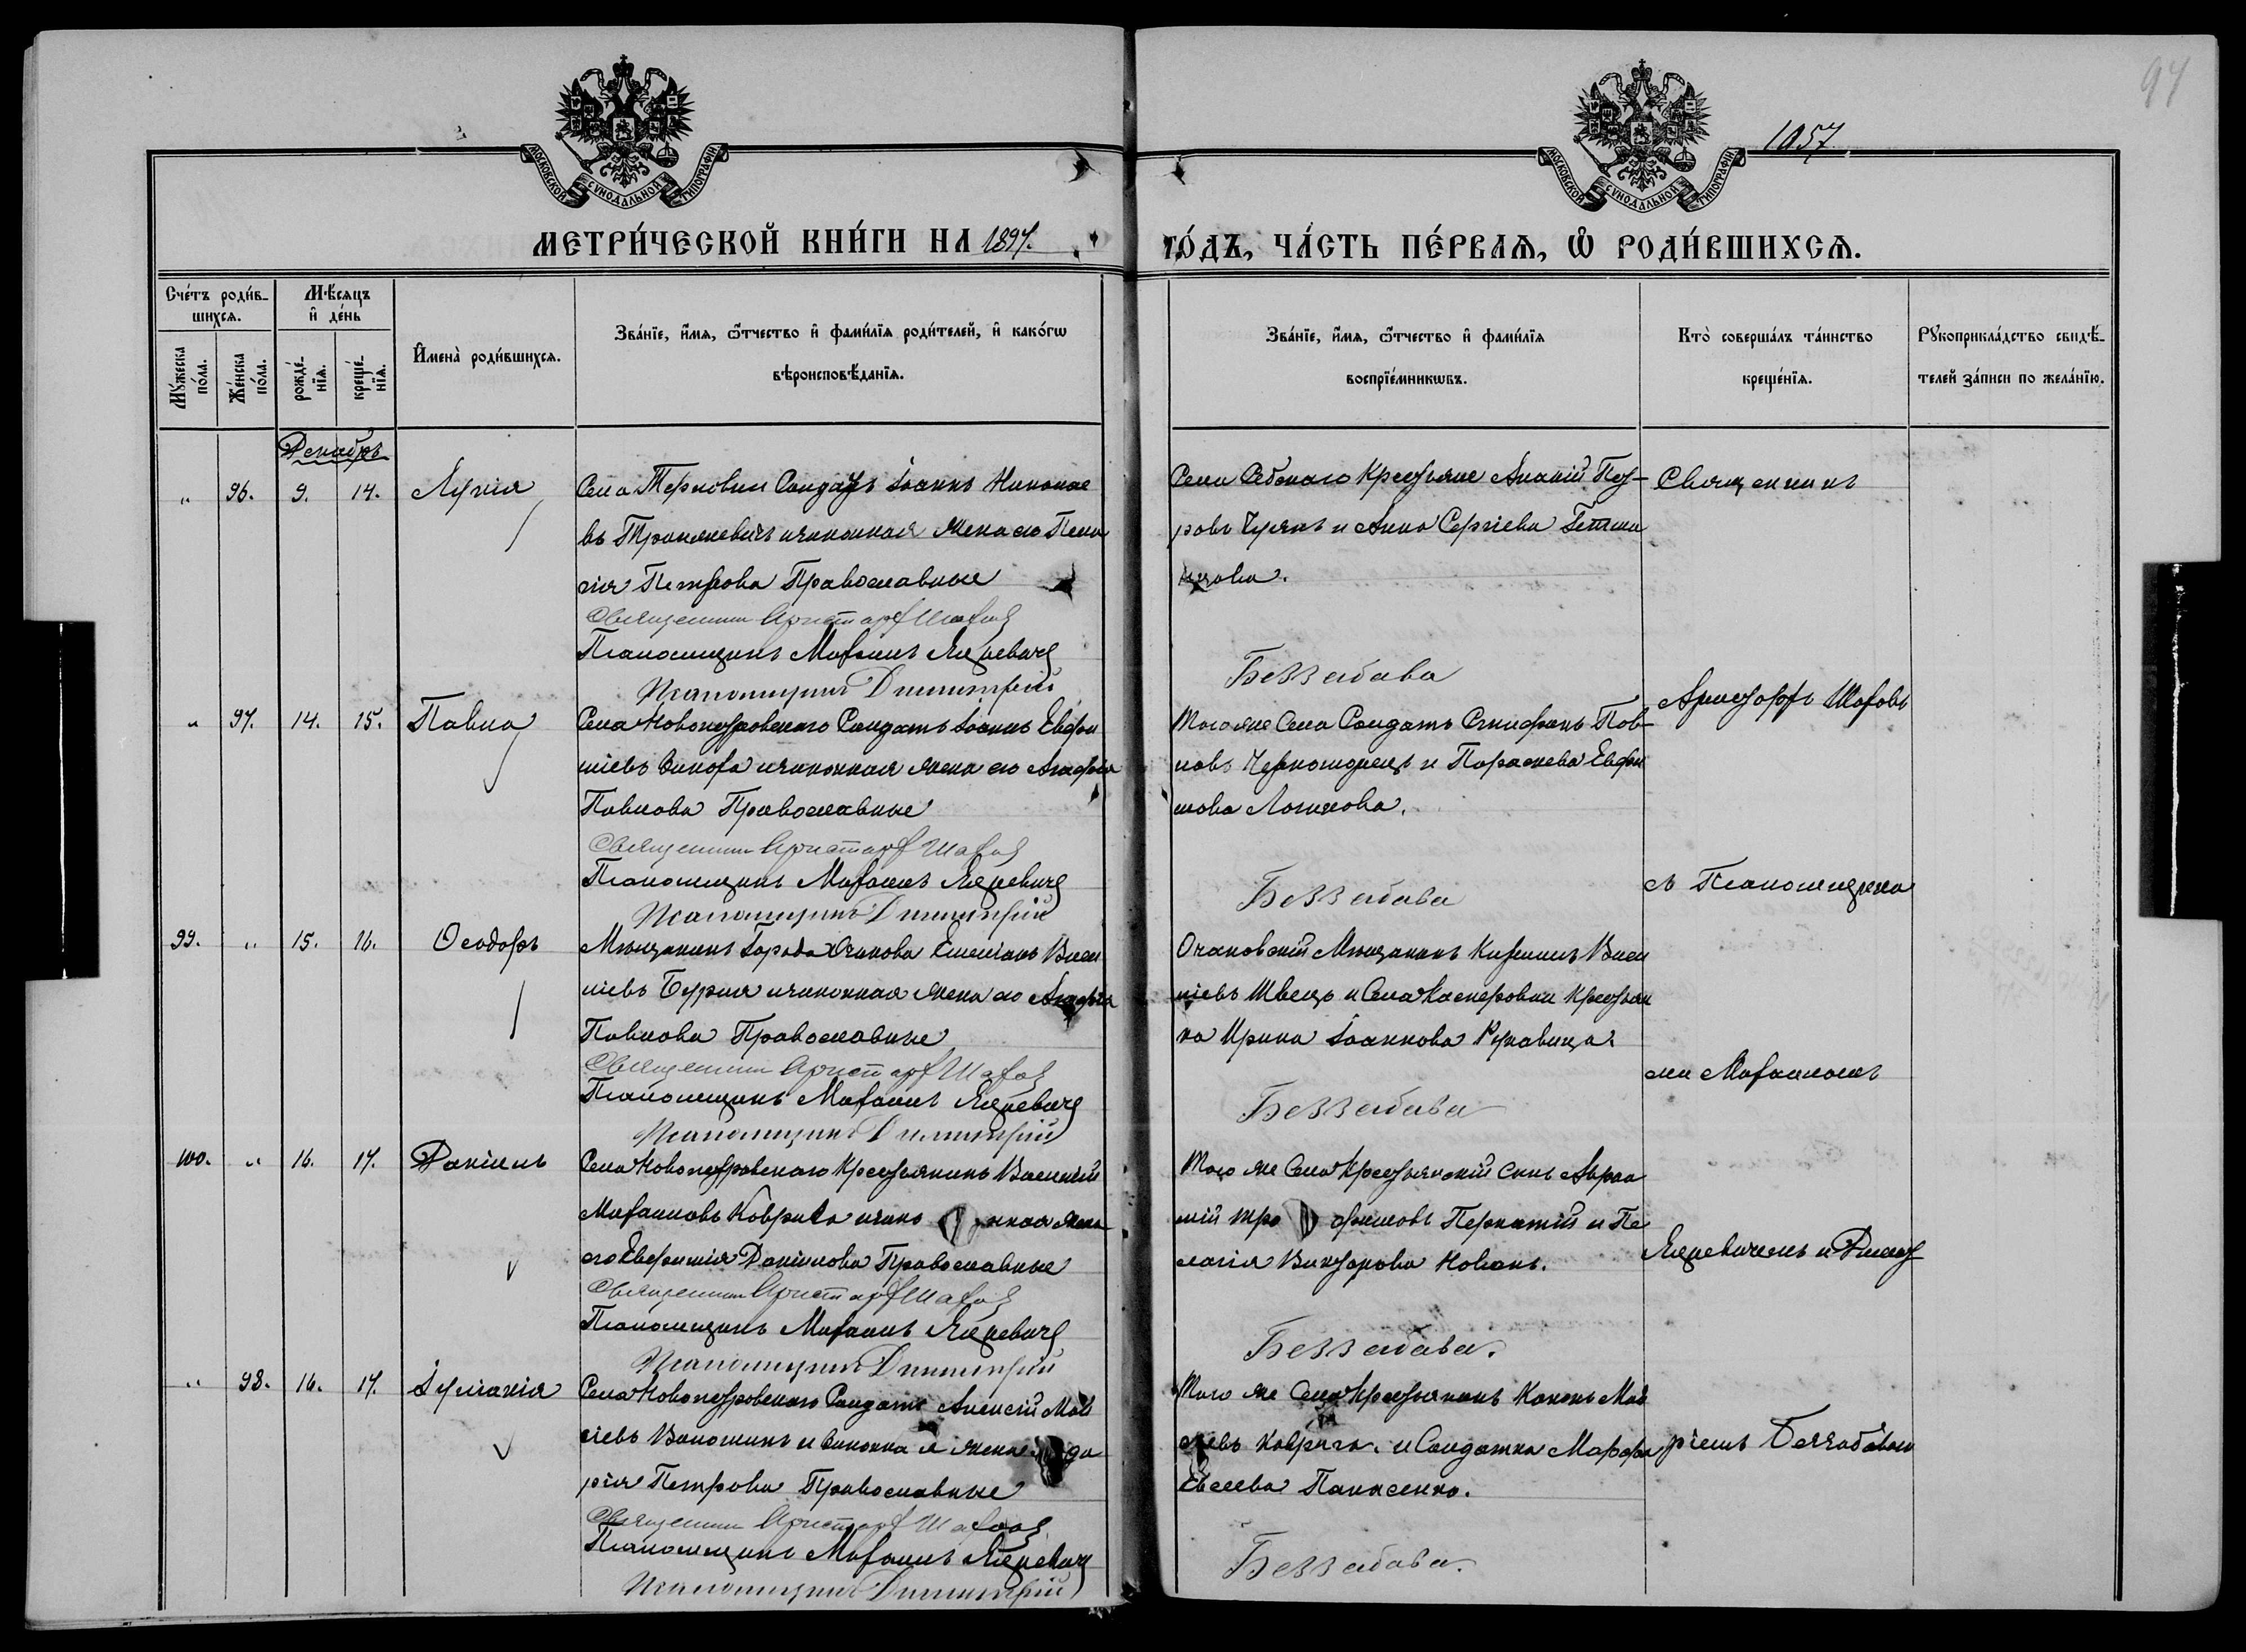 94
1057.
МОСКОВСКОЙ СѴНОДАЛЬНОЙ ТИПОГРАФІИ
МОСКОВСКОЙ СѴНОДАЛЬНОЙ ТИПОГРАФІИ
МЕТРИ́ЧЕСКОЙ КНИ́ГИ НА 1897.
ГО́ДЪ, ЧА́СТЬ ПЕ́РВАѦ, Ѿ РОДИ́ВШИХСѦ.
Сче́тъ роди́в-
шихсѧ.
Мѣ́сяцъ
и҆ де́нь
Мꙋ́жеска по́ла.
Же́нска по́ла.
рожде́-нїѧ.
креще́-нїѧ.
И҆мена̀ роди́вшихсѧ.
Зва́нїе, и҆́мѧ, ѻ҆́тчество и҆ фами́лїѧ роди́телей, и҆ како́гѡ
вѣроисповѣ́данїѧ.
Зва́нїе, и҆́мѧ, ѻ҆́тчество и҆ фами́лїѧ
воспрїе́мникѡвъ.
Кто̀ соверша́лъ та́инство
креще́нїѧ.
Рꙋкоприкла́дство свидѣ́-
телей за́писи по жела́нїю.
Декабрь
" 96. 9. 14. Лукія
Села Терновки Солдатъ Іоаннъ Николае
въ Транкевичъ и законная жена его Пела
гія Петрова Православные
Священникъ Аристархъ Шаховъ
Псаломщикъ Михаилъ Яцкевичъ
Псаломщикъ Димитрій
Села Себскаго Крестьяне Ананій Пет-
ровъ Чусякъ и Анна Сергіева
Беззабава
Священникъ
" 97. 14. 15. Павла
Села Новопетровскаго Солдатъ Іоаннъ Евфи
міевъ и законная жена его Агафія
Павлова Православные
Священникъ Аристархъ Шаховъ
Псаломщикъ Михаилъ Яцкевичъ
Псаломщикъ Димитрій
Того же Села Солдатъ Стефанъ Пав-
ловъ Черноморецъ и Параскева Евфи
мова Логинова.
Беззабава
Аристархъ Шаховъ
съ Псаломщика
99. " 15. 16. Ѳеодоръ
Мѣщанинъ Города Очакова Емеліанъ Васи
ліевъ Бурка и законная жена его Агафія
Павлова Православные
Священникъ Аристархъ Шаховъ
Псаломщикъ Михаилъ Яцкевичъ
Псаломщикъ Димитрій
Очаковскій Мѣщанинъ Кириллъ Васи
ліевъ Швецъ и Села Касперовки Крестьян
ка Ирина Іоаннова Рукавица.
Беззабава
ми Михаиломъ
100. " 16. 17. Даніилъ
Села Новопетровскаго Крестьянинъ Василій
Михаиловъ Коврига и зако нная жена
его Евфимія Даніилова Православные
Священникъ Аристархъ Шаховъ
Псаломщикъ Михаилъ Яцкевичъ
Псаломщикъ Димитрій
Того же Села Крестьянскій Сынъ Авраа
мій Тро фимовъ Пернатій и Пе
лагія Викторова Новакъ.
Беззабава.
Яцкевичемъ и Димит
" 98. 16. 17. Іуліанія
Села Новопетровскаго Солдатъ Алексій Мои
сіевъ Волошинъ и законная жена его Да
рія Петрова Православные
Священникъ Аристархъ Шаховъ
Псаломщикъ Михаилъ Яцкевичъ
Псаломщикъ Димитрій
Того же Села Крестьянинъ Кононъ Мои
сеевъ Коврига и Солдатка Марфа
Евсеева Панасенко.
Беззабава.
ріемъ Беззабавою